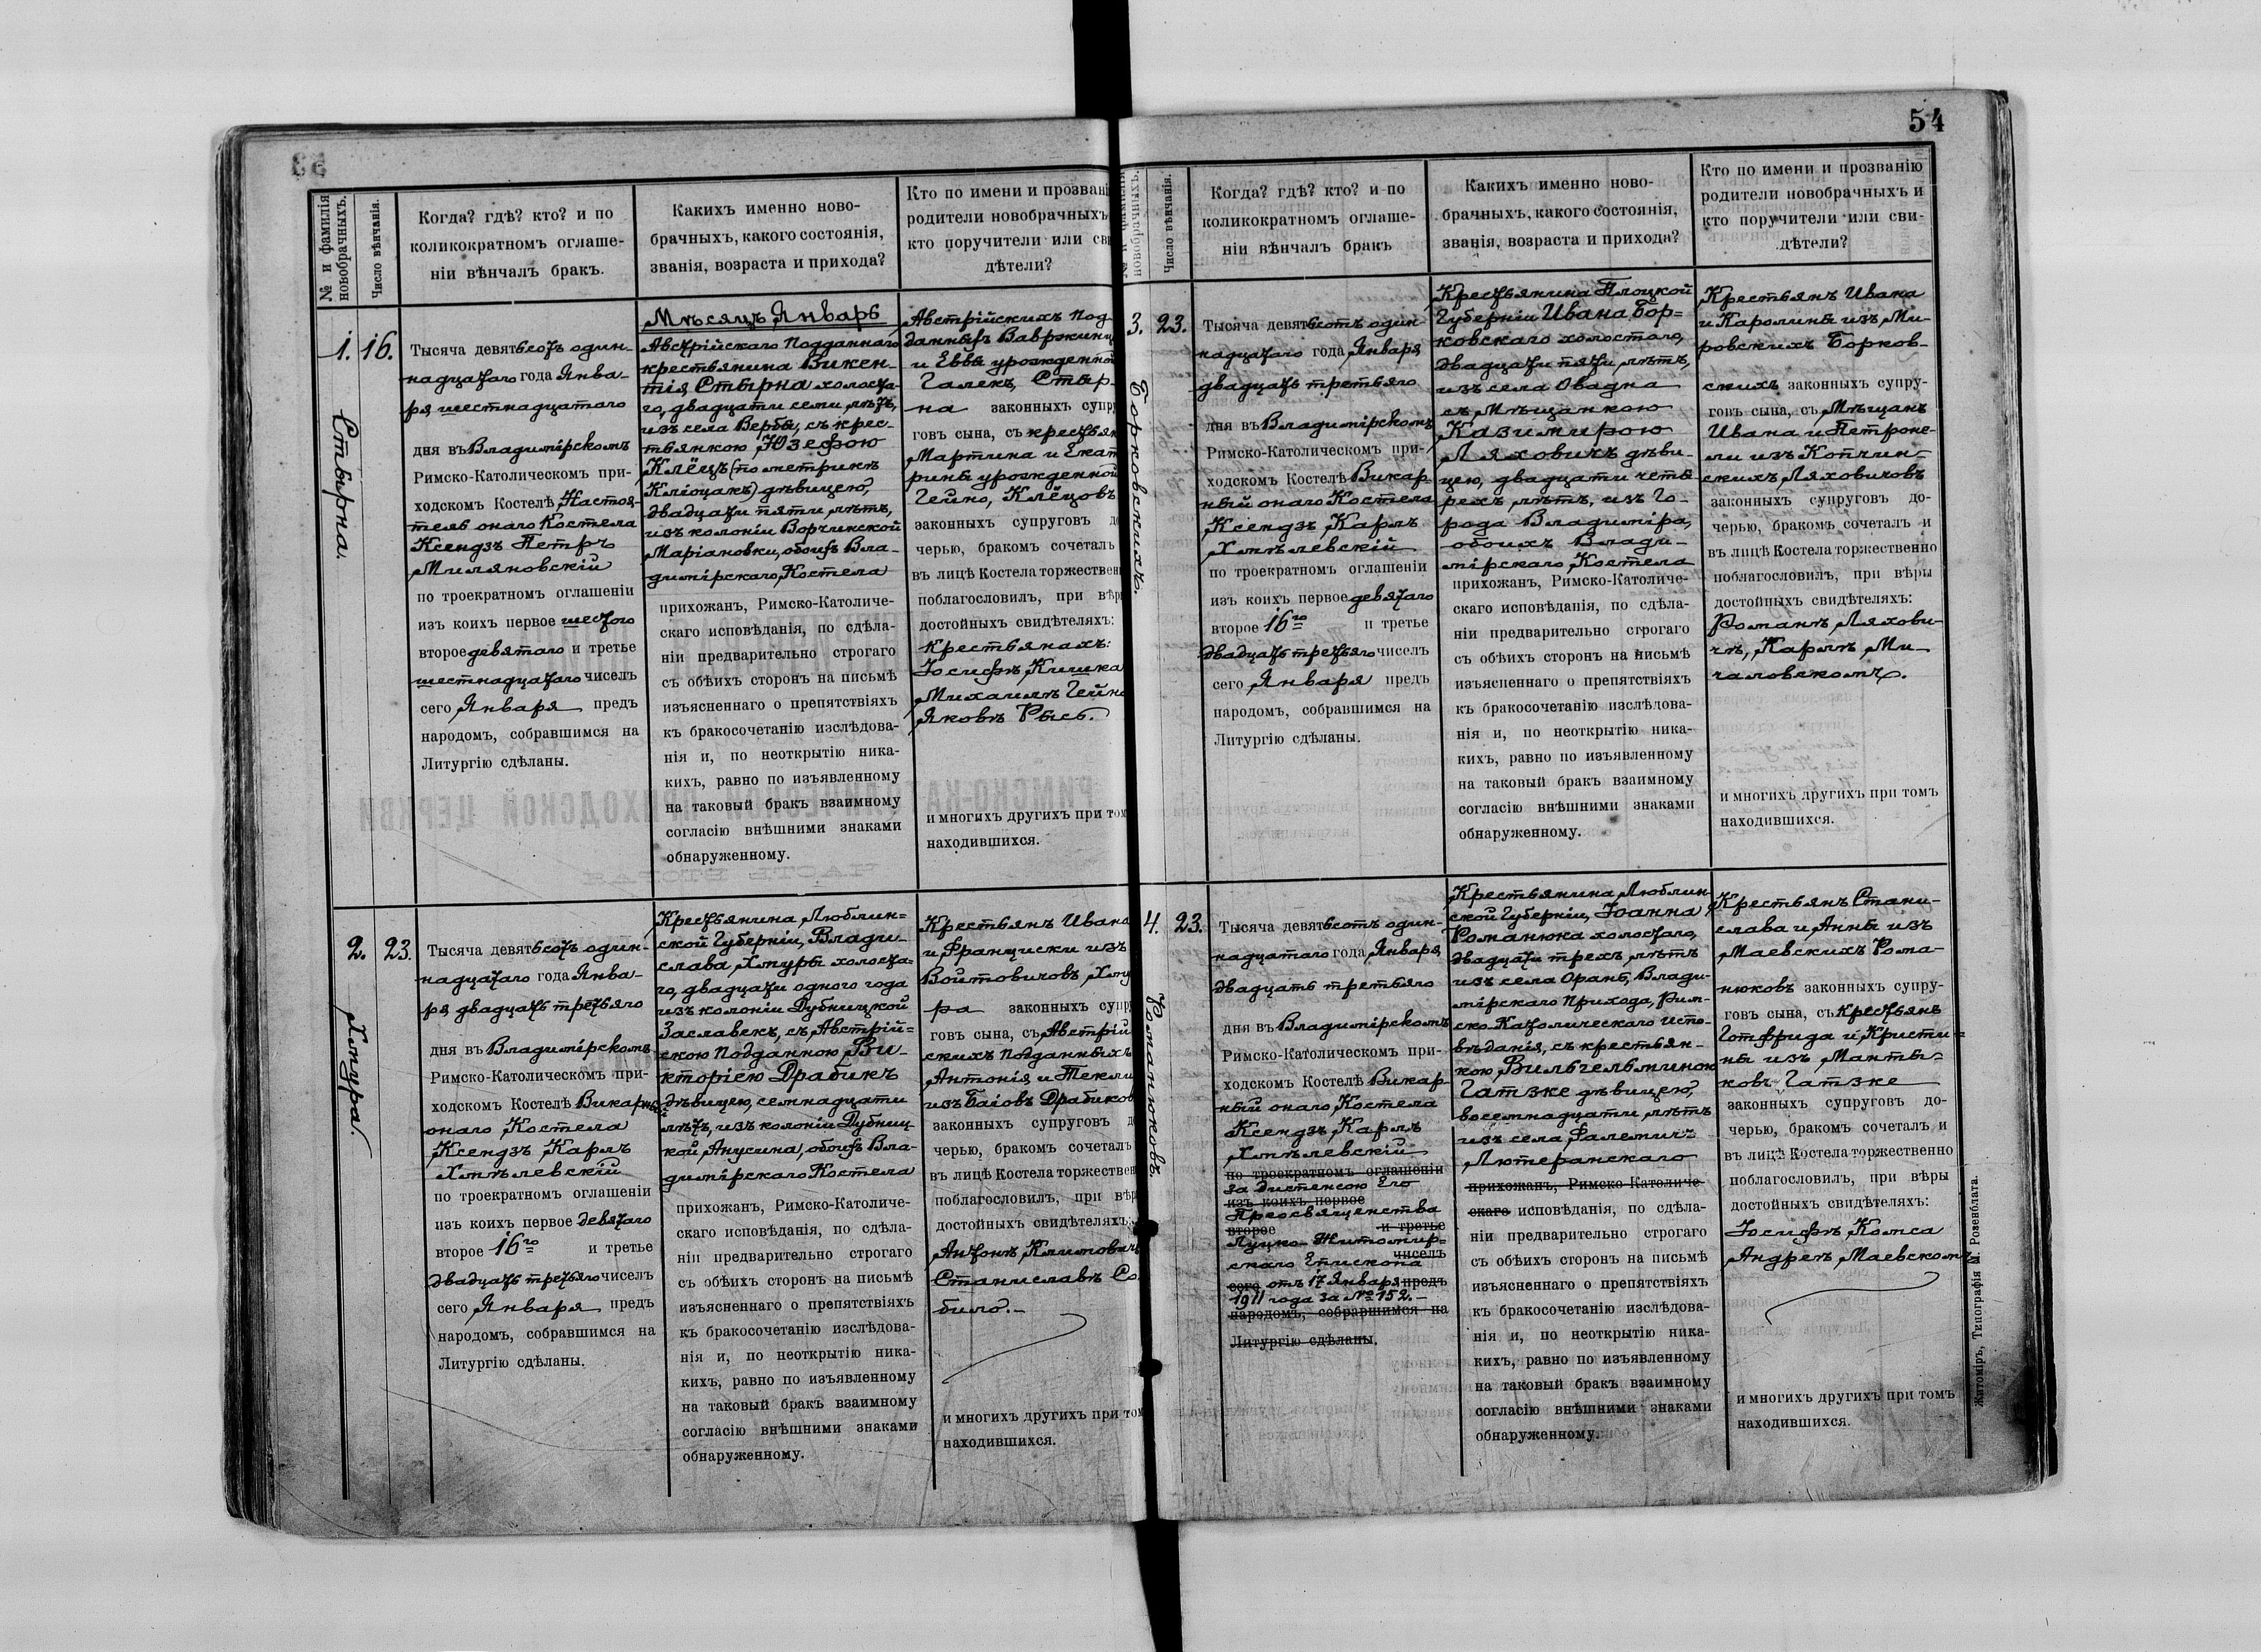 54
№ и фамилія
новобрачныхъ.
Число вѣнчанія.
Когда? гдѣ? кто? и по
коликократномъ оглаше-
ніи вѣнчалъ бракъ.
Какихъ именно ново-
брачныхъ, какого состоянія,
званія, возраста и прихода?
Кто по имени и прозвані
родители новобрачныхъ
кто поручители или сви
дѣтели?
1.
16.
Стырна.
Тысяча девятьсотъ один-
надцатаго года Янва-
ря шестнадцатаго
дня въ Владимірскомъ
Римско-Католическомъ при-
ходскомъ Костелѣ, Настоя-
тель онаго Костела
Ксендзъ Петръ
Миляновскій
по троекратномъ оглашеніи
изъ коихъ первое шестого
второе девятаго и третье
шестнадцатаго чиселъ
сего Января предъ
народомъ, собравшимся на
Литургію сдѣланы.
Мѣсяцъ Январь
Австрійскаго подданнаго
крестьянина Викен-
тія Стырна холоста-
го, двадцати семи лѣтъ,
изъ села Вербы, съ крес-
тьянкою Юзефою
Клёцъ (по метрикѣ
Кліоцакъ) дѣвицею,
двадцати пяти лѣтъ,
изъ колоніи Ворчинской
Маріановки, обоихъ Вла-
димірскаго Костела
прихожанъ, Римско-Католиче-
скаго исповѣданія, по сдѣла-
ніи предварительно строгаго
съ обѣихъ сторонъ на письмѣ
изъясненнаго о препятствіяхъ
къ бракосочетанію изслѣдова-
нія и, по неоткрытію ника-
кихъ, равно по изъявленному
на таковый бракъ взаимному
согласію внѣшними знаками
обнаруженному.
Австрійскихъ под-
данныхъ Вавржинц
и Еввы урожденной
Галекъ, Стыр-
на законныхъ супру
говъ сына, съ крестьян
Мартина и Екат
рины урожденной
Гейно, Клёцовъ
законныхъ супруговъ до
черью, бракомъ сочеталъ
въ лицѣ Костела торжествен
поблагословилъ, при вѣры
достойныхъ свидѣтеляхъ:
крестьянахъ:
Іосифѣ Кишка
Михаилѣ Гейно
Яковѣ Рысь.
и многихъ другихъ при том
находившихся.
2.
23.
Хмура.
Тысяча девятьсотъ один-
надцатаго года Янва-
ря двадцать третьяго
дня въ Владимірскомъ
Римско-Католическомъ при-
ходскомъ Костелѣ Викарный
онаго Костела
Ксендзъ Карлъ
Хмѣлевскій
по троекратномъ оглашеніи
изъ коихъ первое девятаго
второе 16го и третье
двадцать третьяго чиселъ
сего Января предъ
народомъ, собравшимся на
Литургію сдѣланы.
Крестьянина Люблин-
ской Губерніи, Влади-
слава Хмуры холоста-
го, двадцати одного года
изъ колоніи Дубницкой
Заславекъ, съ Австрій-
скою подданною Ви-
кторіею Драбикъ
дѣвицею, семнадцати
лѣтъ, изъ колоніи Дубниц-
кой, Анусина, обоихъ Вла-
димірскаго Костела
прихожанъ, Римско-Католиче-
скаго исповѣданія, по сдѣла-
ніи предварительно строгаго
съ обѣихъ сторонъ на письмѣ
изъясненнаго о препятствіяхъ
къ бракосочетанію изслѣдова-
нія и, по неоткрытію ника-
кихъ, равно по изъявленному
на таковый бракъ взаимному
согласію внѣшними знаками
обнаруженному.
Крестьянъ Ивана
и Франциски изъ
Войтовичовъ, Хму
ра законныхъ супру
говъ сына, съ Австрій
скихъ подданныхъ
Антонія и Текли
изъ Баіовъ Драбиков
законныхъ супруговъ д
черью, бракомъ сочеталъ
въ лицѣ Костела торжествен
поблагословилъ, при вѣр
достойныхъ свидѣтеляхъ:
Антонѣ Климович
Станиславѣ Со
било.-
и многихъ другихъ при том
находившихся.
Число вѣнчанія.
Когда? гдѣ? кто? и по
коликократномъ оглаше-
ніи вѣнчалъ бракъ
Какихъ именно ново-
брачныхъ, какого состоянія,
званія, возраста и прихода?
Кто по имени и прозванію
родители новобрачныхъ и
кто поручители или сви-
дѣтели?
3.
23.
Борковскихъ.
Тысяча девятьсотъ один-
надцатаго года Января
двадцать третьяго
дня въ Владимірскомъ
Римско-Католическомъ при-
ходскомъ Костелѣ Викар-
ный онаго Костела
Ксендзъ Карлъ
Хмѣлевскій
по троекратномъ оглашеніи
изъ коихъ первое девятаго
второе 16го и третье
двадцать третьяго чиселъ
сего Января предъ
народомъ, собравшимся на
Литургію сдѣланы.
Крестьянина Плоцкой
Губерніи Ивана Бор-
ковскаго холостаго,
двадцати пяти лѣтъ,
изъ села Овадна
съ Мѣщанкою
Казимирою
Ляховичъ дѣви-
цею, двадцати четы
рехъ лѣтъ, изъ Го-
рода Владиміра,
обоихъ Влади-
мірскаго Костела
прихожанъ, Римско-Католиче-
скаго исповѣданія, по сдѣла-
ніи предварительно строгаго
съ обѣихъ сторонъ на письмѣ
изъясненнаго о препятствіяхъ
къ бракосочетанію изслѣдова-
нія и, по неоткрытію ника-
кихъ, равно по изъявленному
на таковый бракъ взаимному
согласію внѣшними знаками
обнаруженному.
Крестьянъ Ивана
и Каролины изъ Ми-
ровскихъ Борков-
скихъ законныхъ супру-
говъ сына, съ Мѣщанъ
Ивана и Петроне-
ли изъ Копчин-
скихъ Ляховичовъ
законныхъ супруговъ до-
черью, бракомъ сочеталъ и
въ лицѣ Костела торжественно
поблагословилъ, при вѣры
достойныхъ свидѣтеляхъ:
Романѣ Ляхови-
чѣ, Карлѣ Ми-
чаловскомъ.
и многихъ другихъ при томъ
находившихся.
4.
23.
Романюковъ.
Тысяча девятьсотъ один-
надцатаго года Января
двадцать третьяго
дня въ Владимірскомъ
Римско-Католическомъ при-
ходскомъ Костелѣ Викар-
ный онаго Костела
Ксендзъ Карлъ
Хмѣлевскій
по троекратномъ оглашеніи
За диспенсою Его
изъ коихъ первое
Преосвященства
второе и третье
Луцко-Житомир-
чиселъ
скаго Епископа
сего отъ 17 Января предъ
1911 года за № 152.-
народомъ, собравшимся на
Литургію сдѣланы.
Крестьянина Люблин-
ской Губерніи, Іоанна
Романюка холостаго,
двадцати трехъ лѣтъ
изъ села Оранъ, Влади-
мірскаго Прихода, Рим-
ско-Католическаго испо-
вѣданія, съ крестьян-
кою, Вильгельминою
Гатзке дѣвицею,
восемнадцати лѣтъ
изъ села Фалемич-
Лютеранскаго
прихожанъ, Римско-Католиче-
скаго исповѣданія, по сдѣла-
ніи предварительно строгаго
съ обѣихъ сторонъ на письмѣ
изъясненнаго о препятствіяхъ
къ бракосочетанію изслѣдова-
нія и, по неоткрытію ника-
кихъ, равно по изъявленному
на таковый бракъ взаимному
согласію внѣшними знаками
обнаруженному.
Крестьянъ Стани-
слава и Анны изъ
Маевскихъ Рома-
нюковъ законныхъ супру-
говъ сына, съ Крестьянъ
Готфрида и Кристи-
ны изъ Манты-
ковъ Гатзке
законныхъ супруговъ до-
черью, бракомъ сочеталъ и
въ лицѣ Костела торжественно
поблагословилъ, при вѣры
достойныхъ свидѣтеляхъ:
Іосифѣ Комса
Андреѣ Маевскомъ
и многихъ другихъ при томъ
находившихся.
Житоміръ, Типографія М. Розенблата.